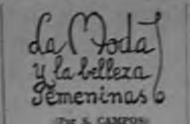 La Moda
y la belleza
femeninas
(Por S. CAMPOS)